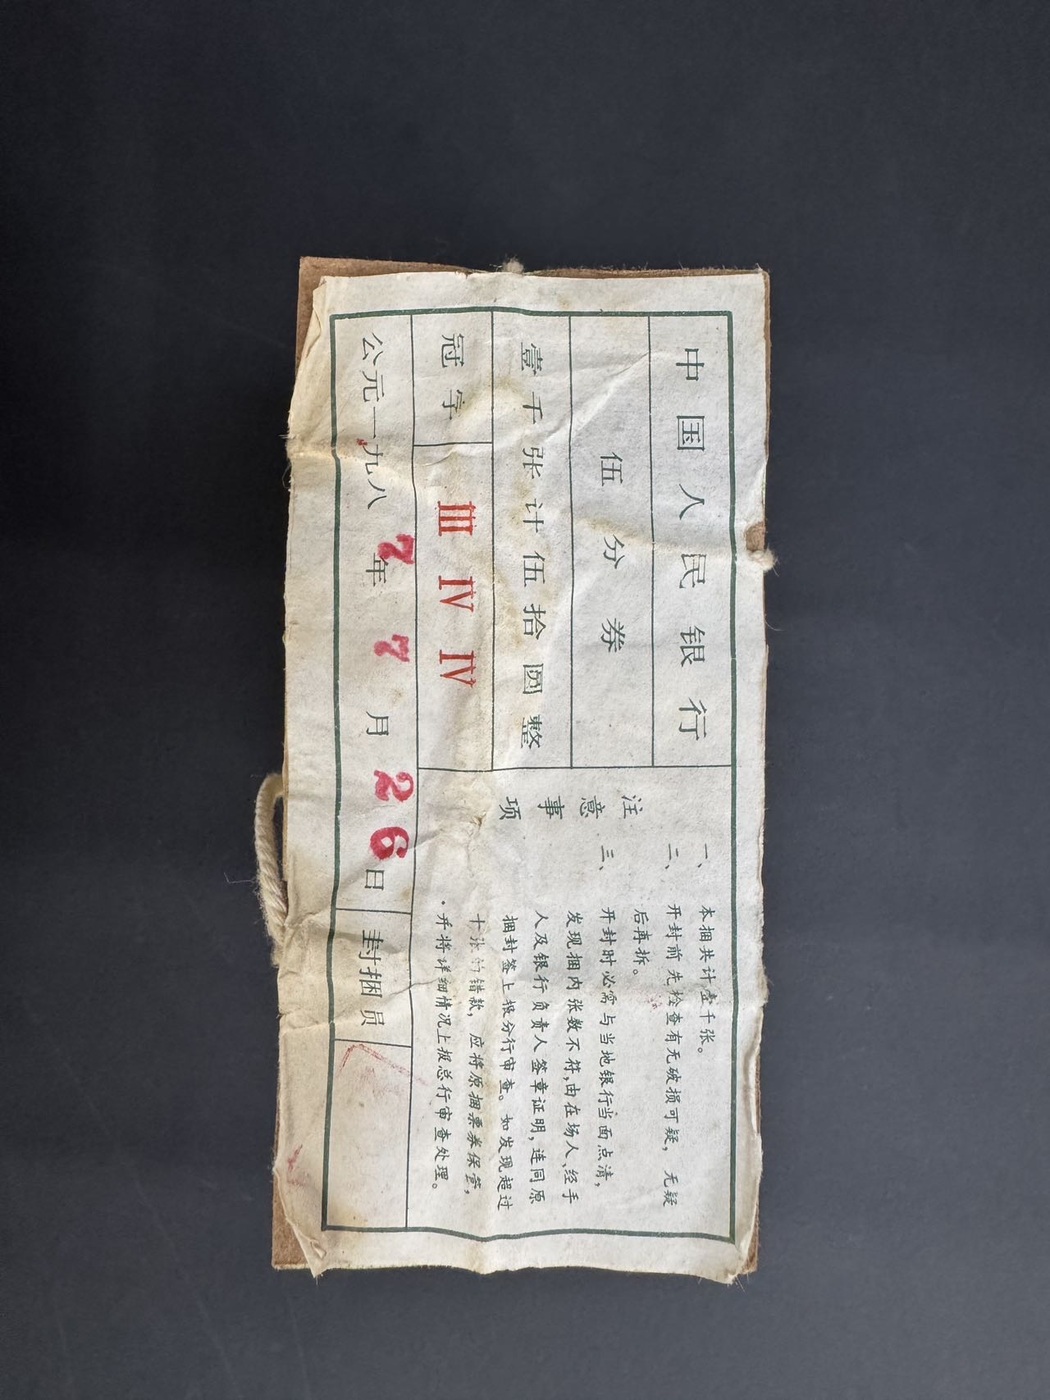 中国人民银行
伍分券
壹千张计伍拾圆整
冠字 III IV IV
公元一九八7年7月26日 封捆员
注意事项
一、本捆共计壹千张。
二、开封前先检查有无破损可疑，无疑
后再拆。
三、开封时必需与当地银行当面点清，
发现捆内张数不符，由在场人、经手
人及银行负责人签章证明，连同原
捆封签上报分行审查。如发现超过
十张的错款，应将原捆票券保管，
并将详细情况上报总行审查处理。